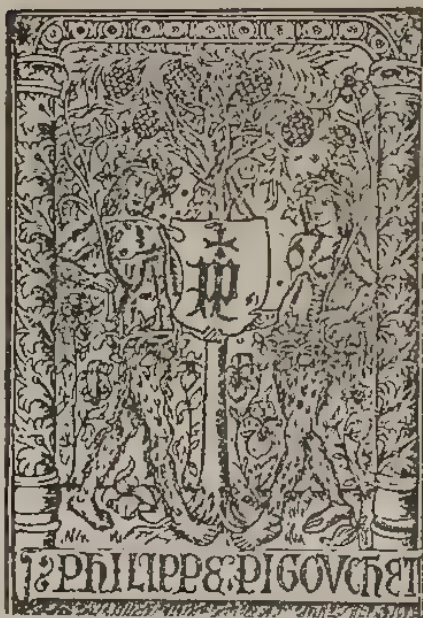 PP
PHILIPPE PIGOVCHET